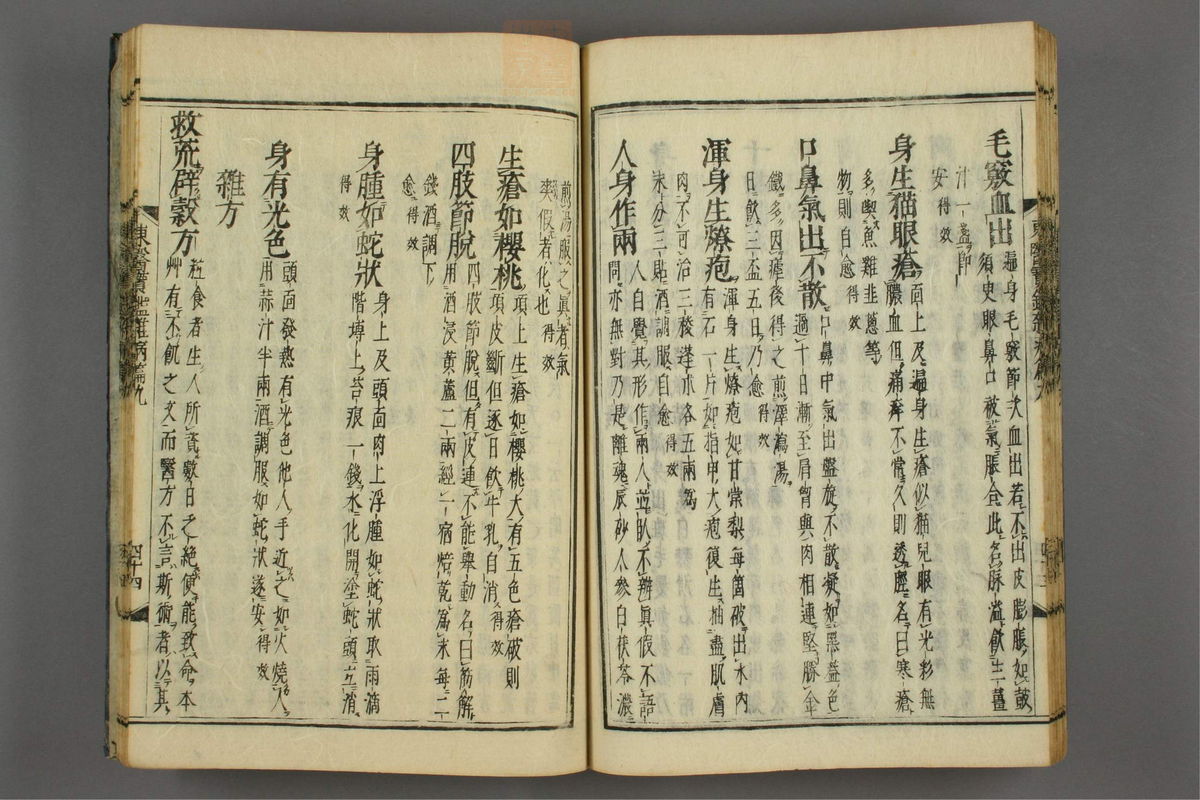 毛竅血出
遍身毛竅節次血出若不出皮膨脹如鼓
須臾眼鼻口被氣脹合此名脉溢飲生薑
汁一盞節
安得效
身生猫眼瘡
面上及遍身生瘡似猫兒眼有光彩無
膿血但痛痒不常久則透脛名曰寒瘡
多喫魚雞韭葱等
物則自愈得效
口鼻氣出不散
口鼻中氣出盤旋不散凝如黑蓋色
過十日漸至肩胷與肉相連堅勝金
鐵多因瘧後得之煎澤瀉湯
日飲三盃五日乃愈得效
渾身生燎疱
渾身生燎疱如甘棠梨每箇破出水內
有石一片如指甲大疱復生抽盡肌膚
肉不可治三稜蓬朮各五兩爲
末分三貼酒調服自愈得效
人身作兩
人自覺其形作兩人並臥不辨眞假不語
問亦無對乃是離魂辰砂人參白茯苓濃
煎湯服之眞者氣
爽假者化也得效
生瘡如櫻桃
項上生瘡如櫻桃大有五色瘡破則
項皮斷但逐日飮牛乳自消得效
四肢節脫
四肢節脫但有皮連不能擧動名曰筋解
用酒浸黃蘆二兩經一宿焙乾爲末每二
錢酒調下
愈得效
身腫如蛇狀
身上及頭面肉上浮腫如蛇狀取雨滴
階塼上苔痕一錢水化開塗蛇頭立消
得效
身有光色
頭面發熱有光色他人手近之如火燒人
用蒜汁半兩酒調服如蛇狀遂安得效
雜方
救荒辟穀方
葢食者生人所資數日之絶便能致命本
艸有不飢之文而醫方不言斯術者以其
東醫寶鑑雜病篇九
四十四